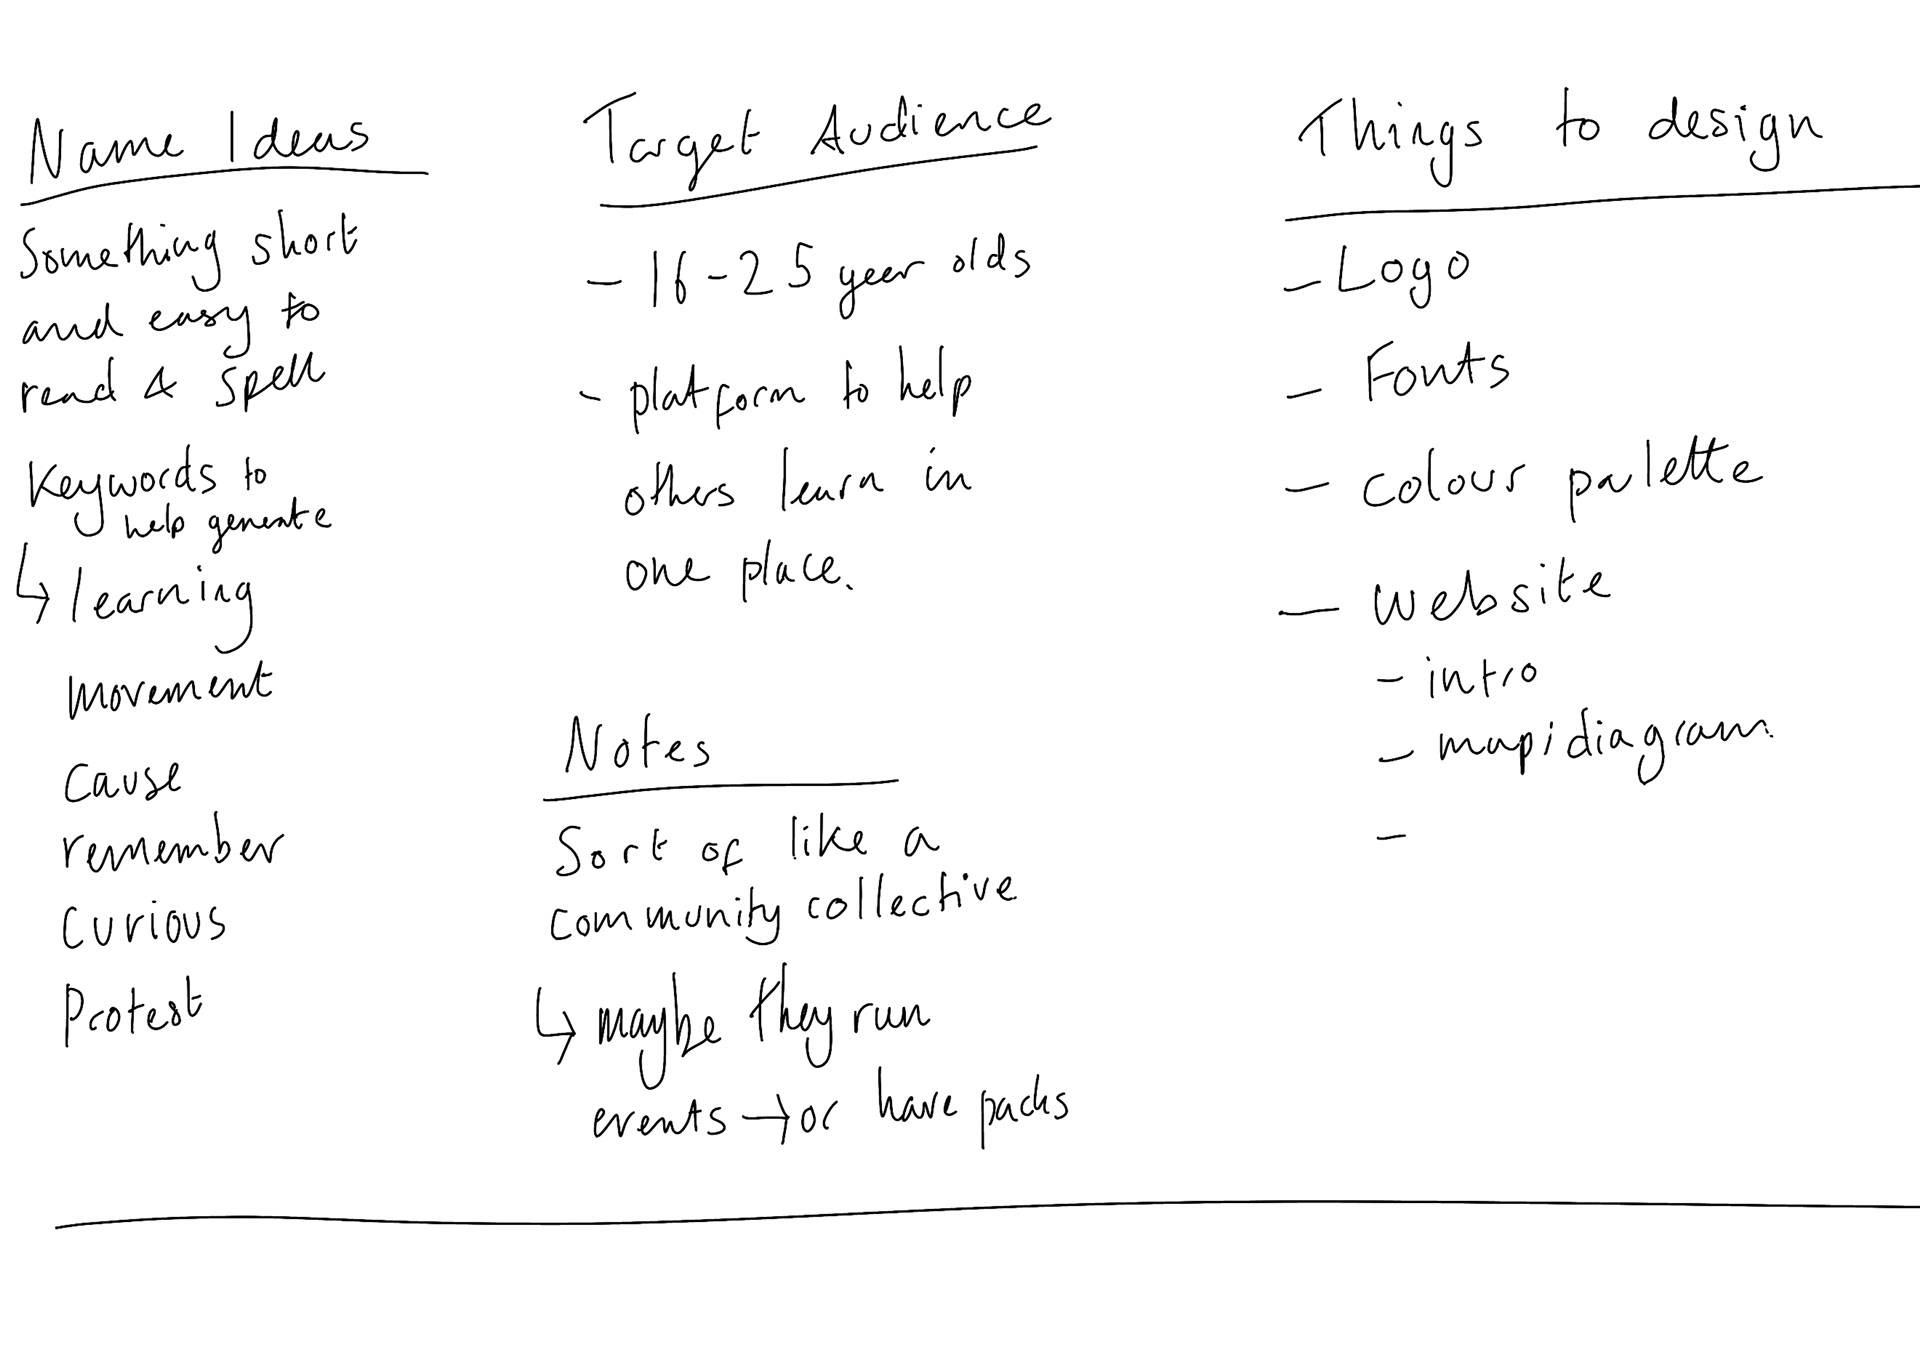 Name Ideas
Something short
and easy to
read & spell
Keywords to
help generate
↳ learning
movement
cause
remember
curious
Protest
Target Audience
- 16-25 year olds
- platform to help
others learn in
one place.
Notes
Sort of like a
community collective
↳ maybe they run
events → or have packs
Things to design
- Logo
- Fonts
- colour palette
- website
- intro
- map/diagram
-